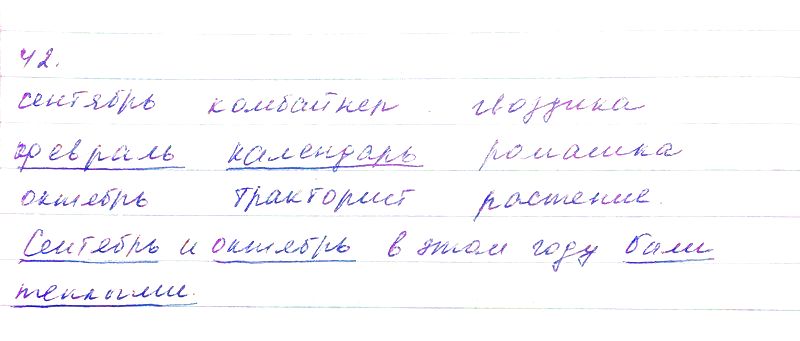 42.
сентябрь комбайнер гвоздика
февраль календарь ромашка
октябрь тракторист растение.
Сентябрь и октябрь в этом году были
теплыми.